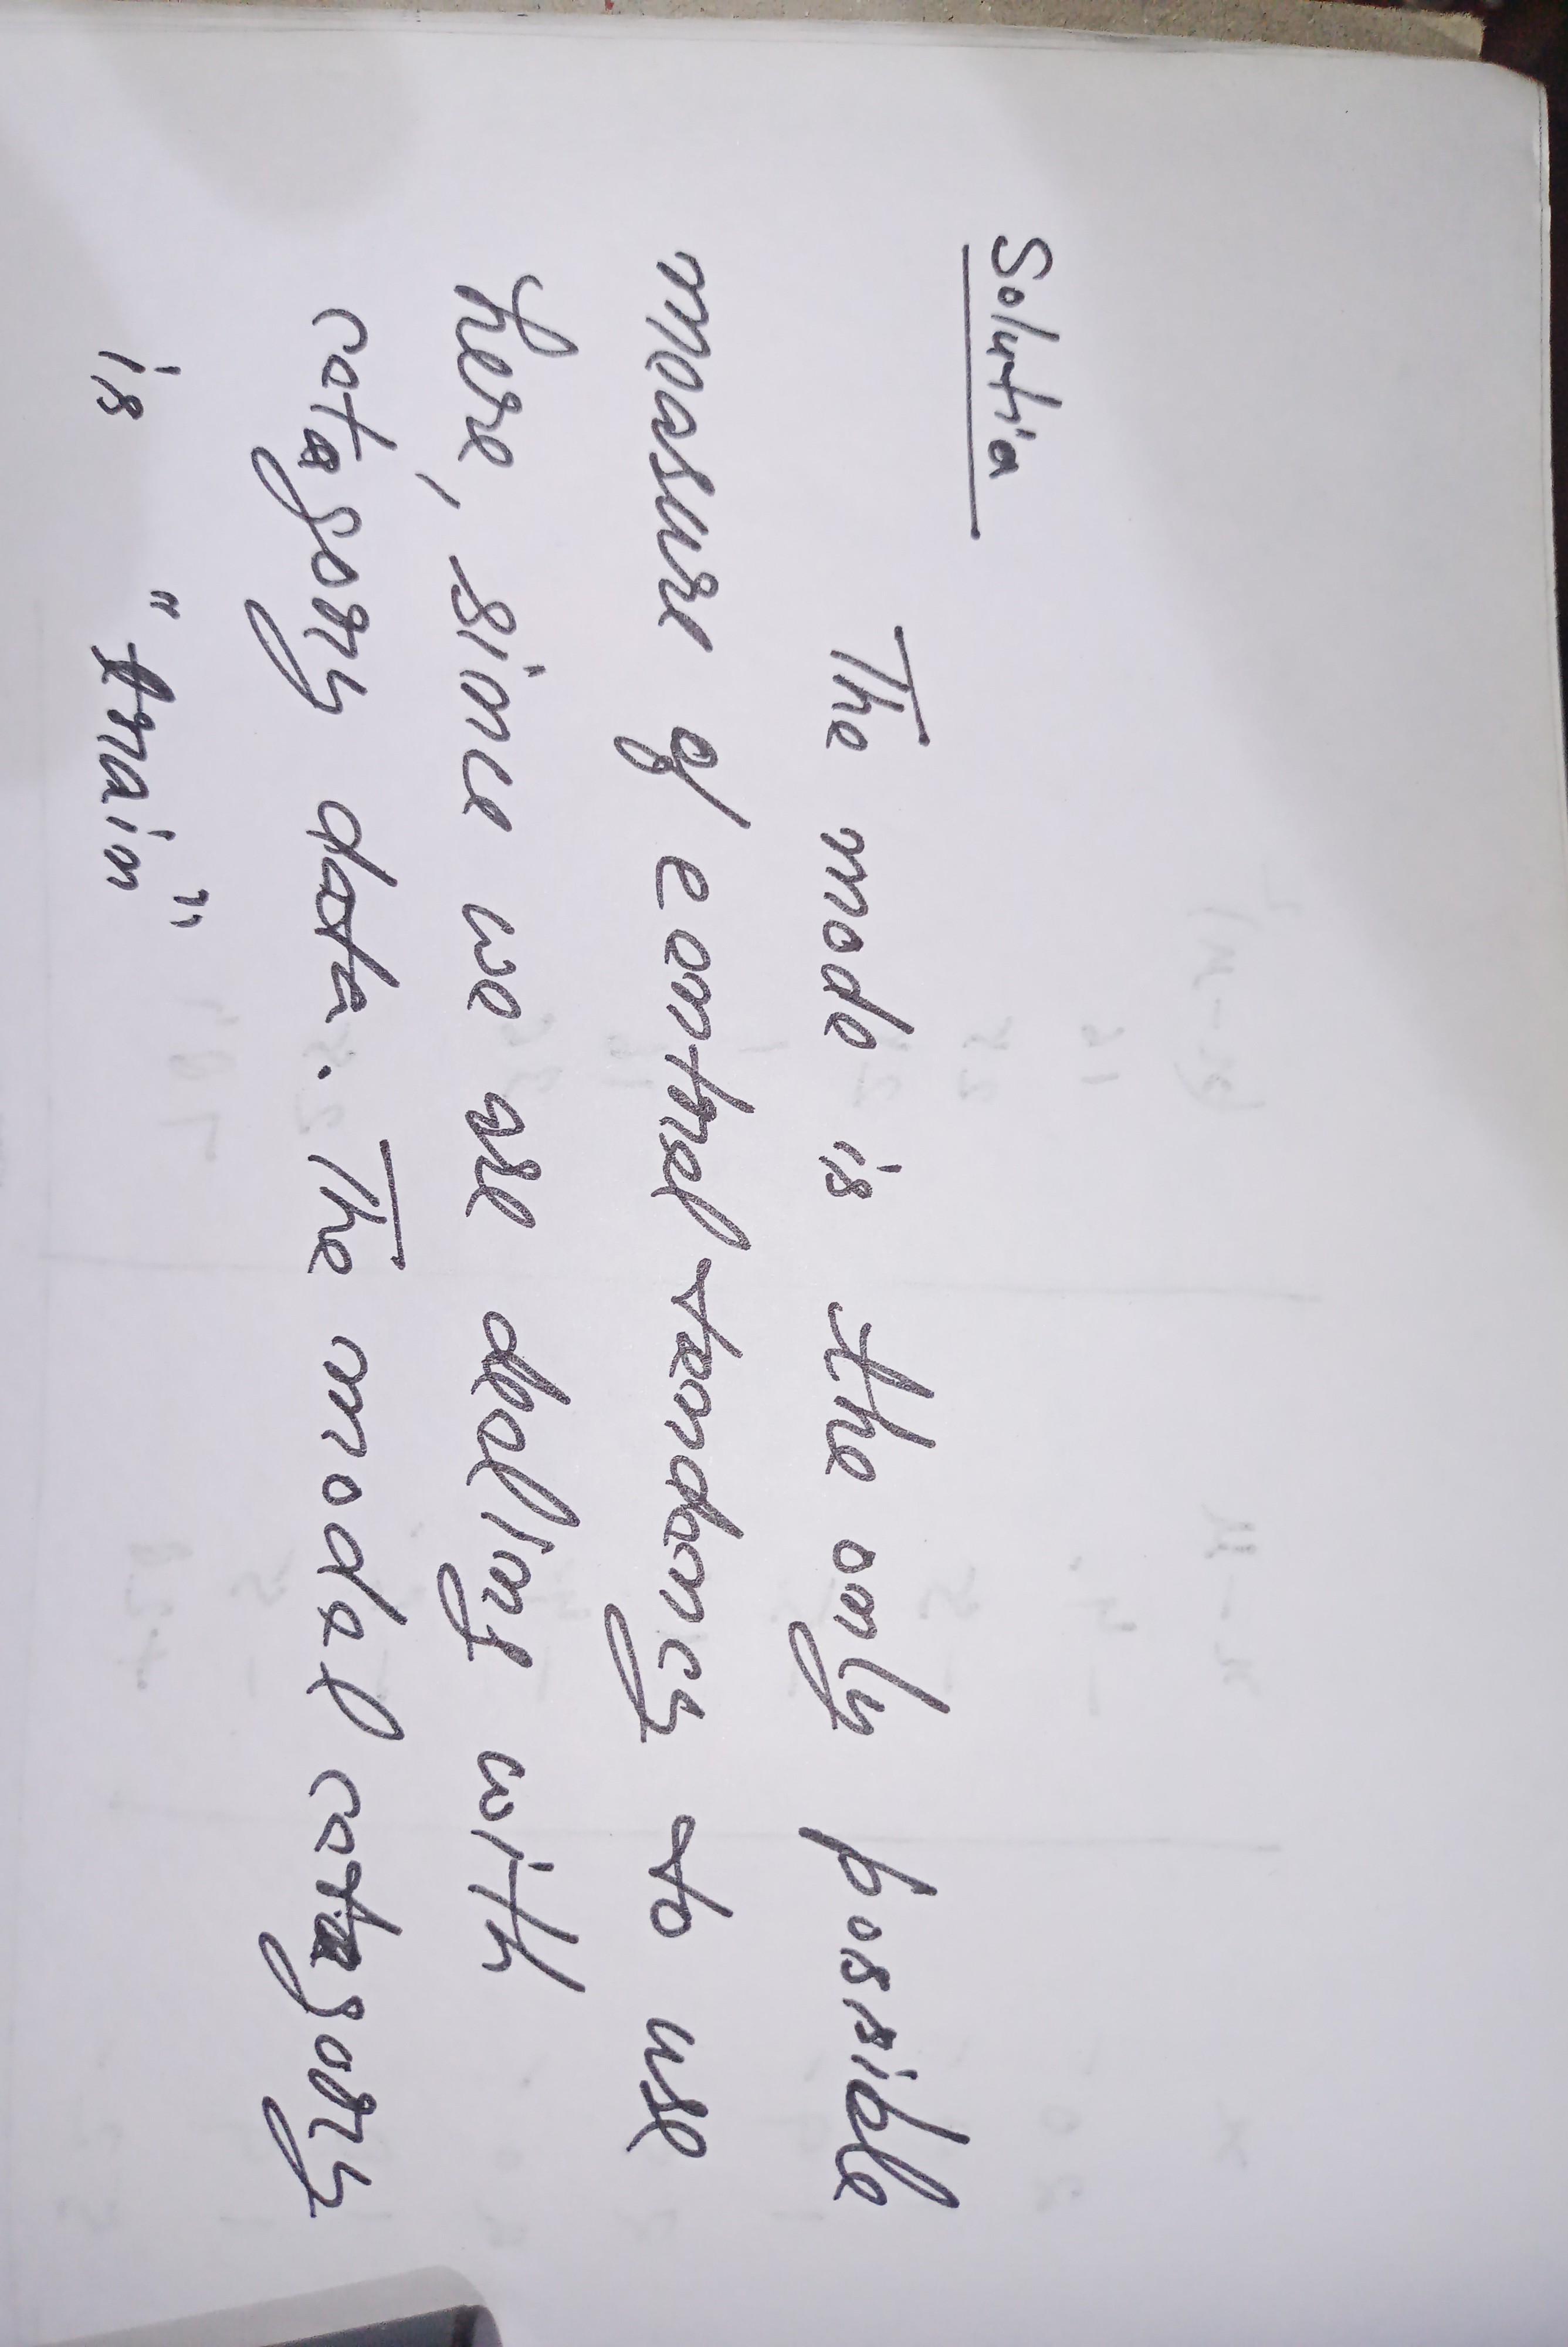 Solutia
The mode is the only possible
measure of central tendency to use
here, since we are dealing with
category data. The modal category
is "train"